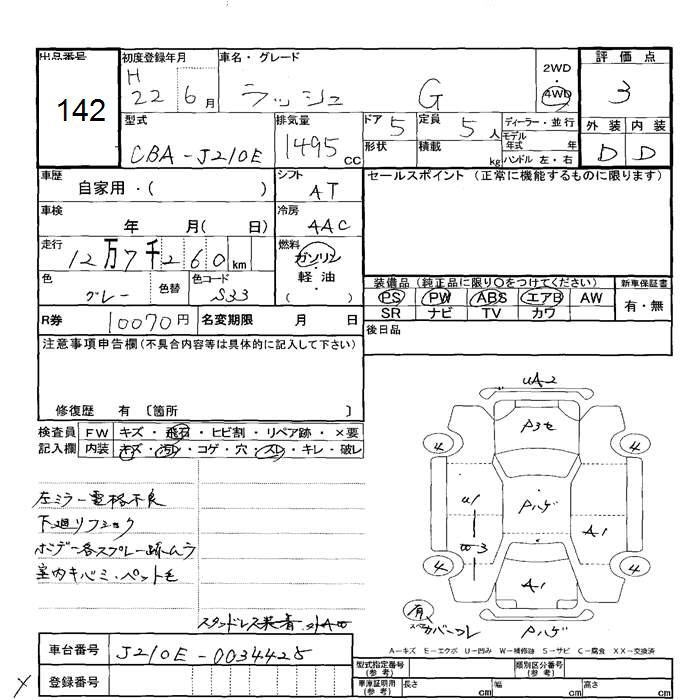 出品番号 142
初度登録年月 H 22 6月
車名・グレード ラッシュ G
2WD
4WD
評価点 3
型式 CBA-J210E
排気量 1495 CC
ドア 5
定員 5人
形状
積載 kg
ディーラー・並行
モデル年式 年
ハンドル 左・右
外装 内装
D D
車歴 自家用・( )
シフト AT
セールスポイント (正常に機能するものに限ります)
車検 年 月( 日)
冷房 AAC
走行 12万7千260 km
燃料 ガソリン
軽油
( )
色 グレー 色替
色コード S33
装備品 (純正品に限り〇をつけてください)
新車保証書
PS PW ABS エアB AW
SR ナビ TV カワ
有・無
R券 10070円 名変期限 月 日
後日品
注意事項申告欄 (不具合内容等は具体的に記入して下さい)
修復歴 有 〔箇所 〕
検査員 FW キズ・飛石・ヒビ割・リペア跡・×要
記入欄 内装 キズ・汚レ・コゲ・穴・スレ・キレ・破レ
左ミラー電格不良
下廻リフショク
ボデー各スプレー跡ムラ
室内キバミ・ペット毛
UA2
P3セ
4 4
U1
Pハゲ
A1
W3
4 4
A1
有
カバーワレ
Pハゲ
A-キズ E-エクボ U-凹み W-補修跡 S-サビ C-腐食 XX-交換済
車台番号 J210E-0034425
登録番号
型式指定番号 (参考)
類別区分番号 (参考)
車庫証明用 (参考) 長さ cm 幅 cm 高さ cm